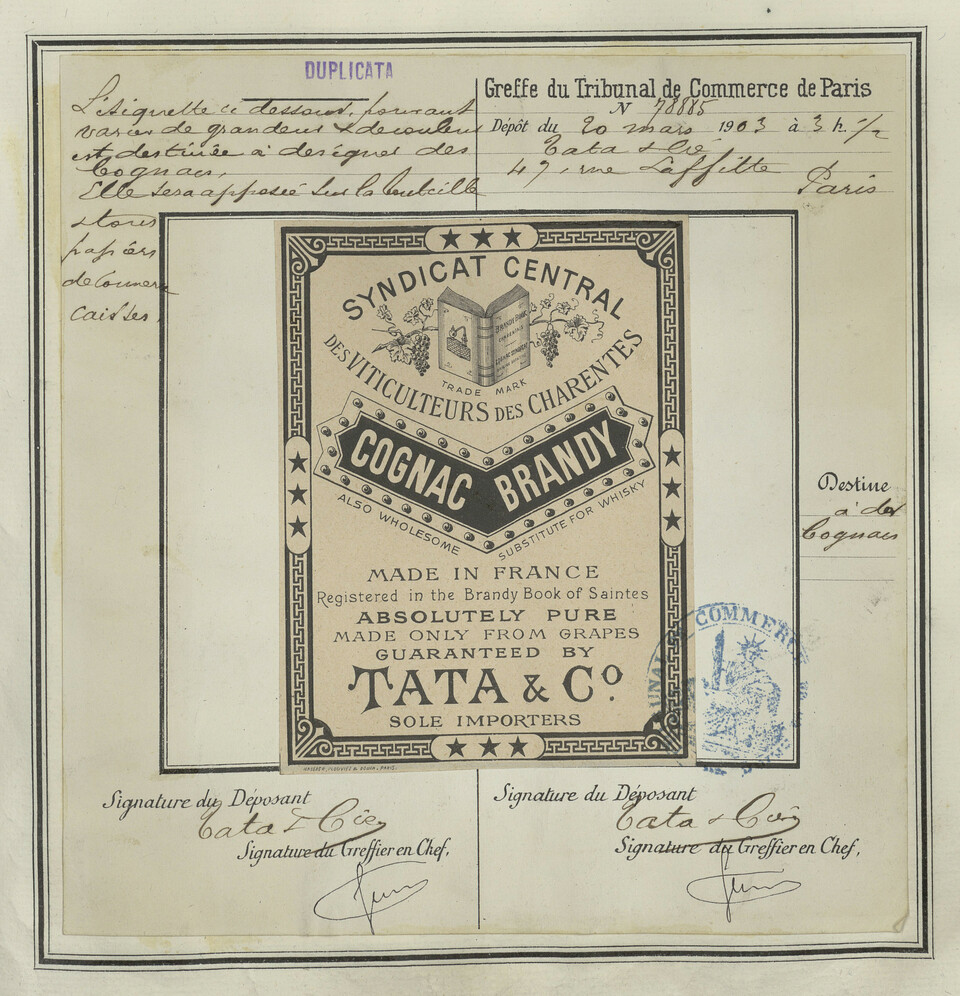 DUPLICATA
L'étiquette ci dessous, pouvant
varier de grandeur & de couleur
est destinée à désigner des
Cognacs,
Elle sera apposée sur la bouteille
stores
papiers
de commerce
caisses,
Greffe du Tribunal de Commerce de Paris
N 78885
Dépôt du 20 mars 1903 à 3 h. 1/2
Tata & Cie
47, rue Laffitte
Paris
SYNDICAT CENTRAL
BRANDY BOOK
TRADE MARK
DES VITICULTEURS DES CHARENTES
COGNAC BRANDY
ALSO WHOLESOME SUBSTITUTE FOR WHISKY
MADE IN FRANCE
Registered in the Brandy Book of Saintes
ABSOLUTELY PURE
MADE ONLY FROM GRAPES
GUARANTEED BY
TATA & Co
SOLE IMPORTERS
PARIS.
Destine
à des
Cognacs
COMMERCE
Signature du Déposant
Tata & Cie
Signature du Greffier en Chef,
Signature du Déposant
Tata & Cie
Signature du Greffier en Chef,